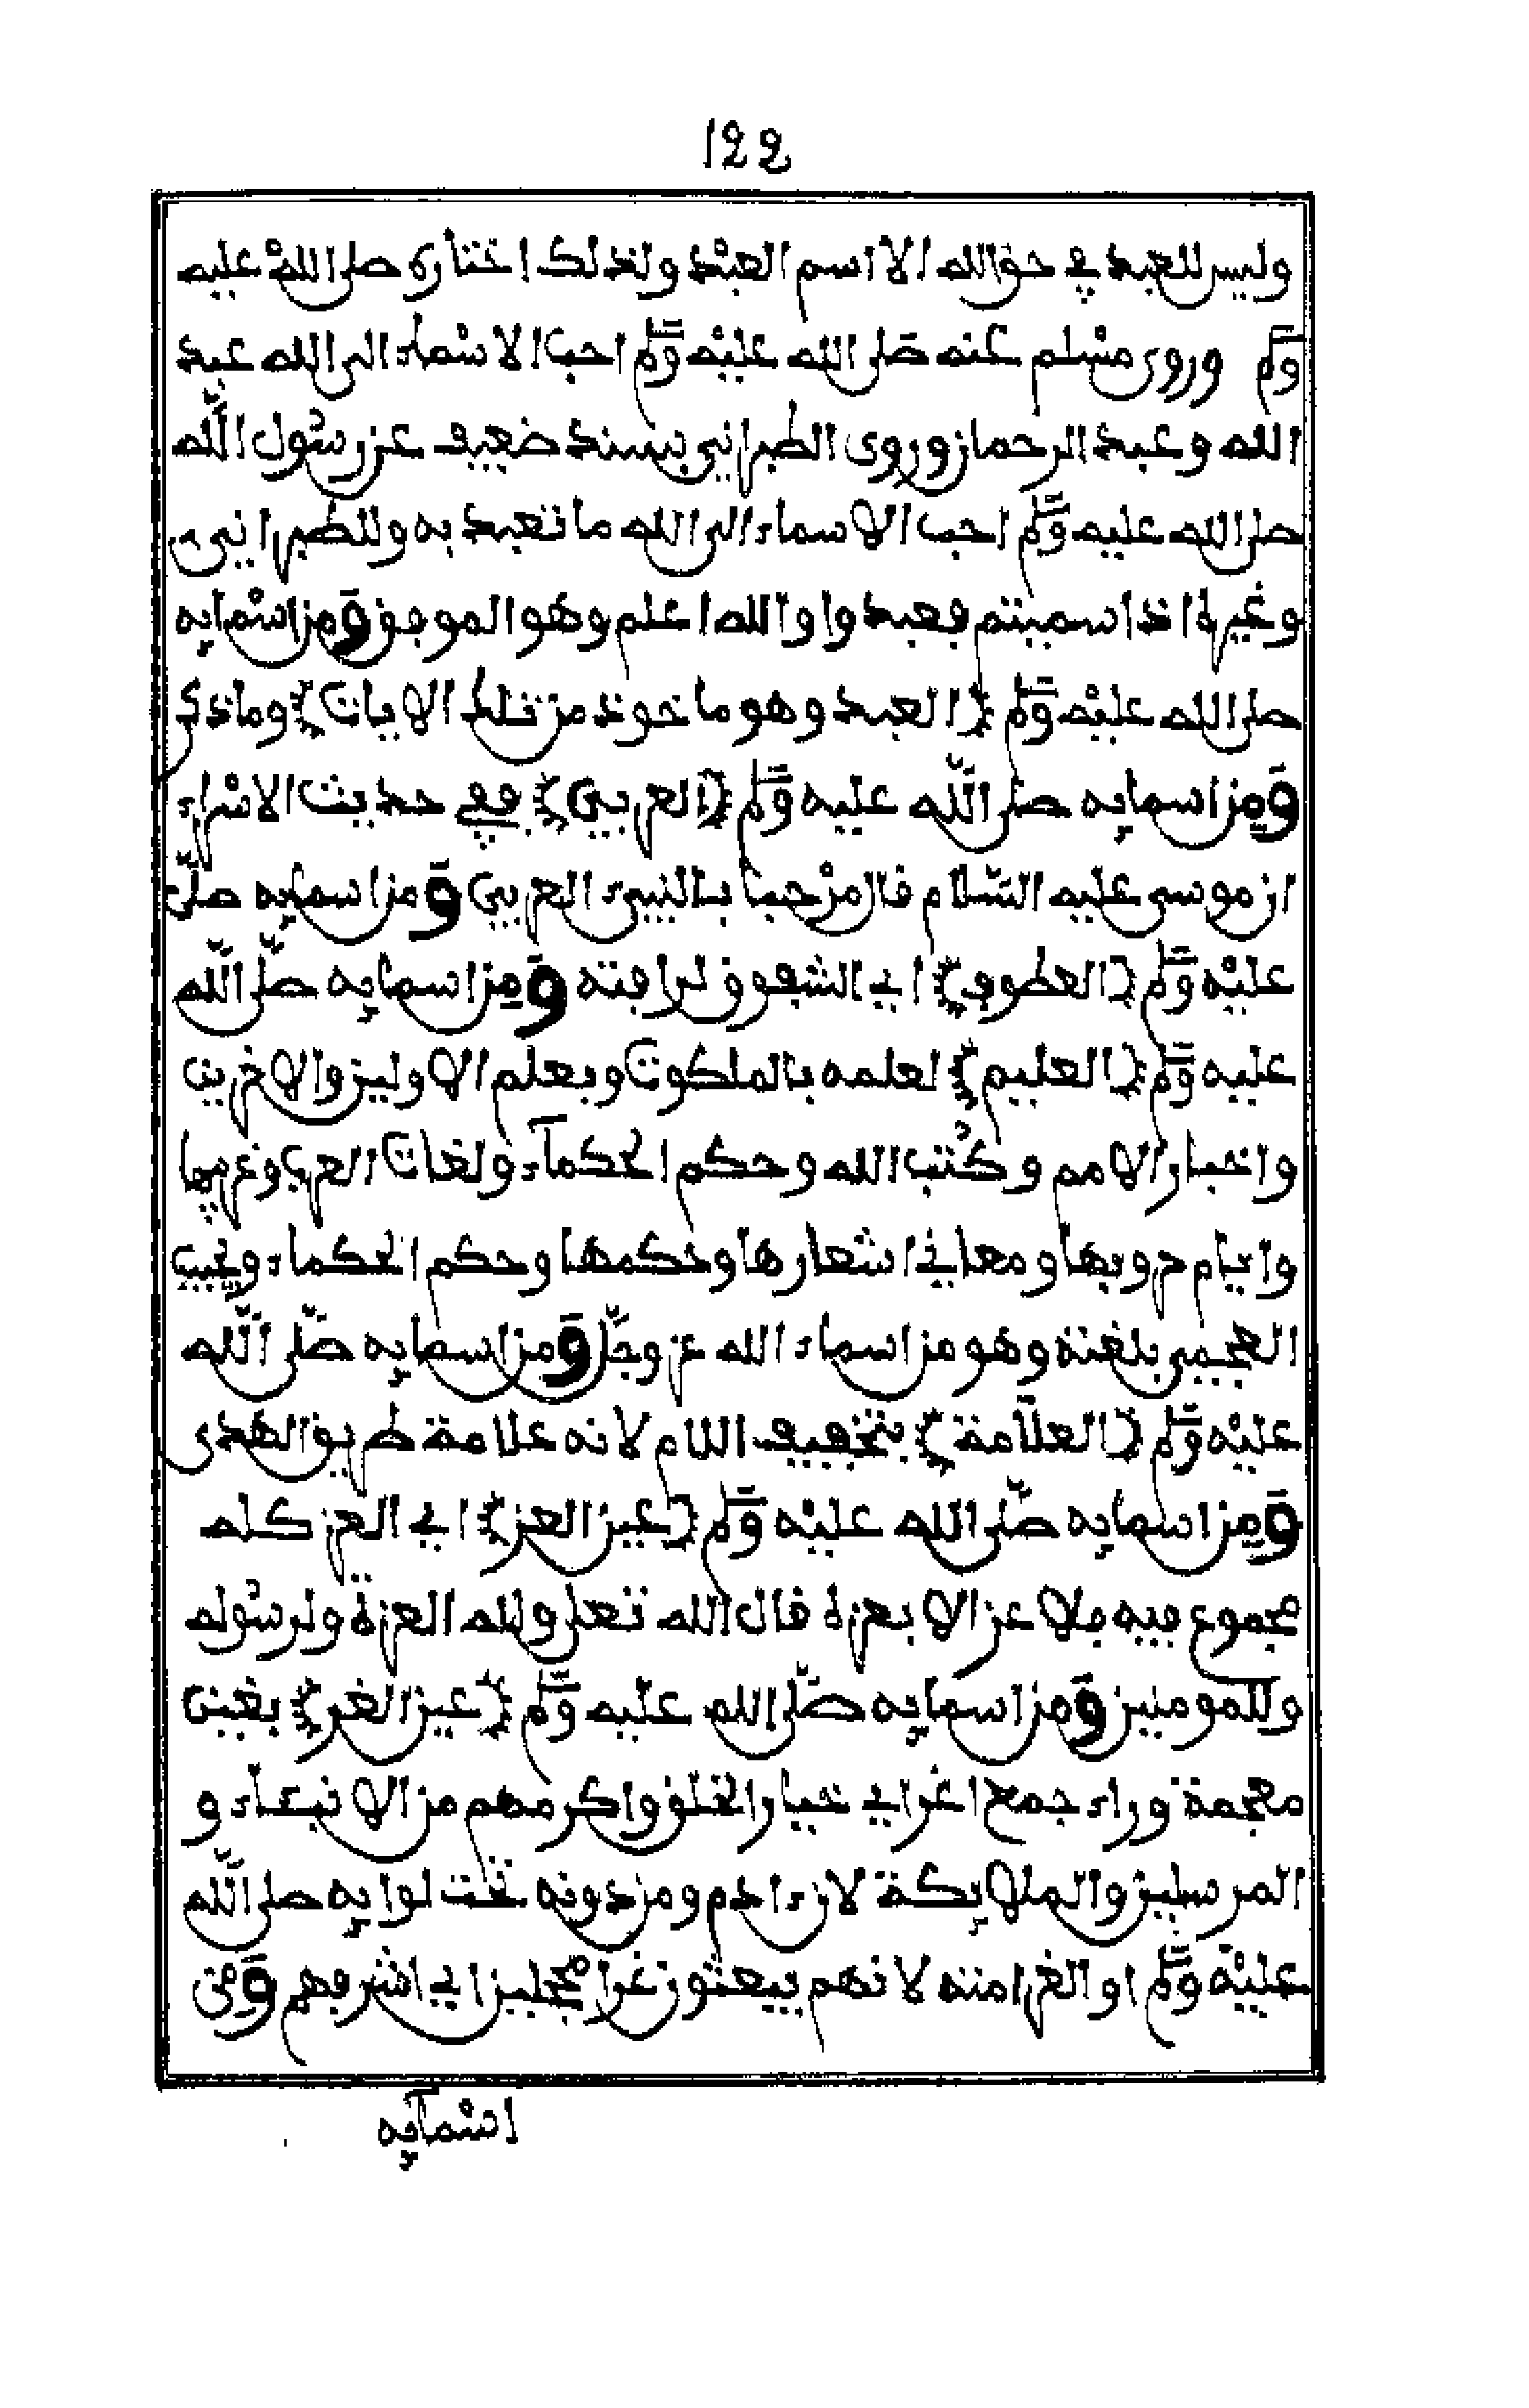 122
وليس للعبد في حق الله الا اسم العبد ولذلك اختاره صلى الله عليه
وسلم وروى مسلم عنه صلى الله عليه وسلم احب الاسماء الى الله عبد
الله وعبد الرحمان وروى الطبراني بسند ضعيف عن رسول الله
صلى الله عليه وسلم احب الاسماء الى الله ما تعبد به وللطبراني
وغيره اذا سميتم فعبدوا والله اعلم وهو الموفق ومن اسمايه
صلى الله عليه وسلم (العبد وهو ماخوذ من تلك الايات) وما ذكر
ومن اسمايه صلى الله عليه وسلم (العربي) ففي حديث الاسراء
ان موسى عليه السلام قال مرحبا بالنبيء العربي ومن اسمايه صلى
عليه وسلم (العطوف) اي الشفوق لرافته ومن اسمايه صلى الله
عليه وسلم (العليم) لعلمه بالملكوت وبعلم الاولين والاخرين
واخبار الامم وكتب الله وحكم الحكماء ولغات العرب وغريبها
وايام حروبها ومعاني اشعارها وحكمها وحكم الحكماء ويجيب
العجمي بلغته وهو من اسماء الله عز وجل ومن اسمايه صلى الله
عليه وسلم (العلامة) بتخفيف اللام لانه علامة طريق الهدى
ومن اسمايه صلى الله عليه وسلم (عين العز) اي العز كله
مجموع فيه فلا عز الا بعزه قال الله تعلى ولله العزة ولرسوله
وللمومنين ومن اسمايه صلى الله عليه وسلم (عين الغر) بغين
معجمة وراء جمع اغر اي خيار الخلق واكرمهم من الانبياء و
المرسلين والملايكة لان ءادم ومن دونه تحت لوايه صلى الله
عليه وسلم او الغر امته لانهم يبعثون غرا محجلين اي اشرفهم ومن
اسمايه